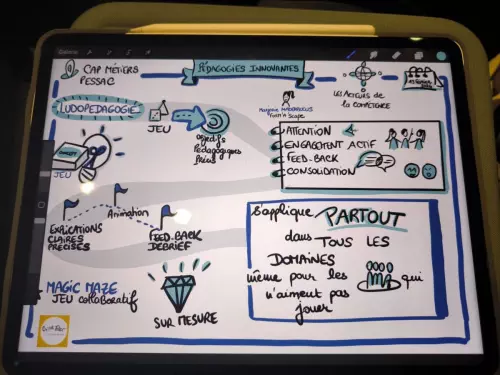 CAP MÉTIERS
PESSAC
PÉDAGOGIES INNOVANTES
LES ACTEURS DE
LA COMPÉTENCE
LUDOPEDAGOGIE
JEU
objectifs
Pédagogiques
précis
ATTENTION
ENGAGEMENT ACTIF
FEED-BACK
CONSOLIDATION
CONCEPT
JEU
Animation
EXPLICATIONS
CLAIRES
PRÉCISES
FEED-BACK
DEBRIEF
S'applique PARTOUT
dans TOUS LES
DOMAINES
même pour les
qui
n'aiment pas
jouer
MAGIC MAZE
JEU collaboratif
SUR MESURE